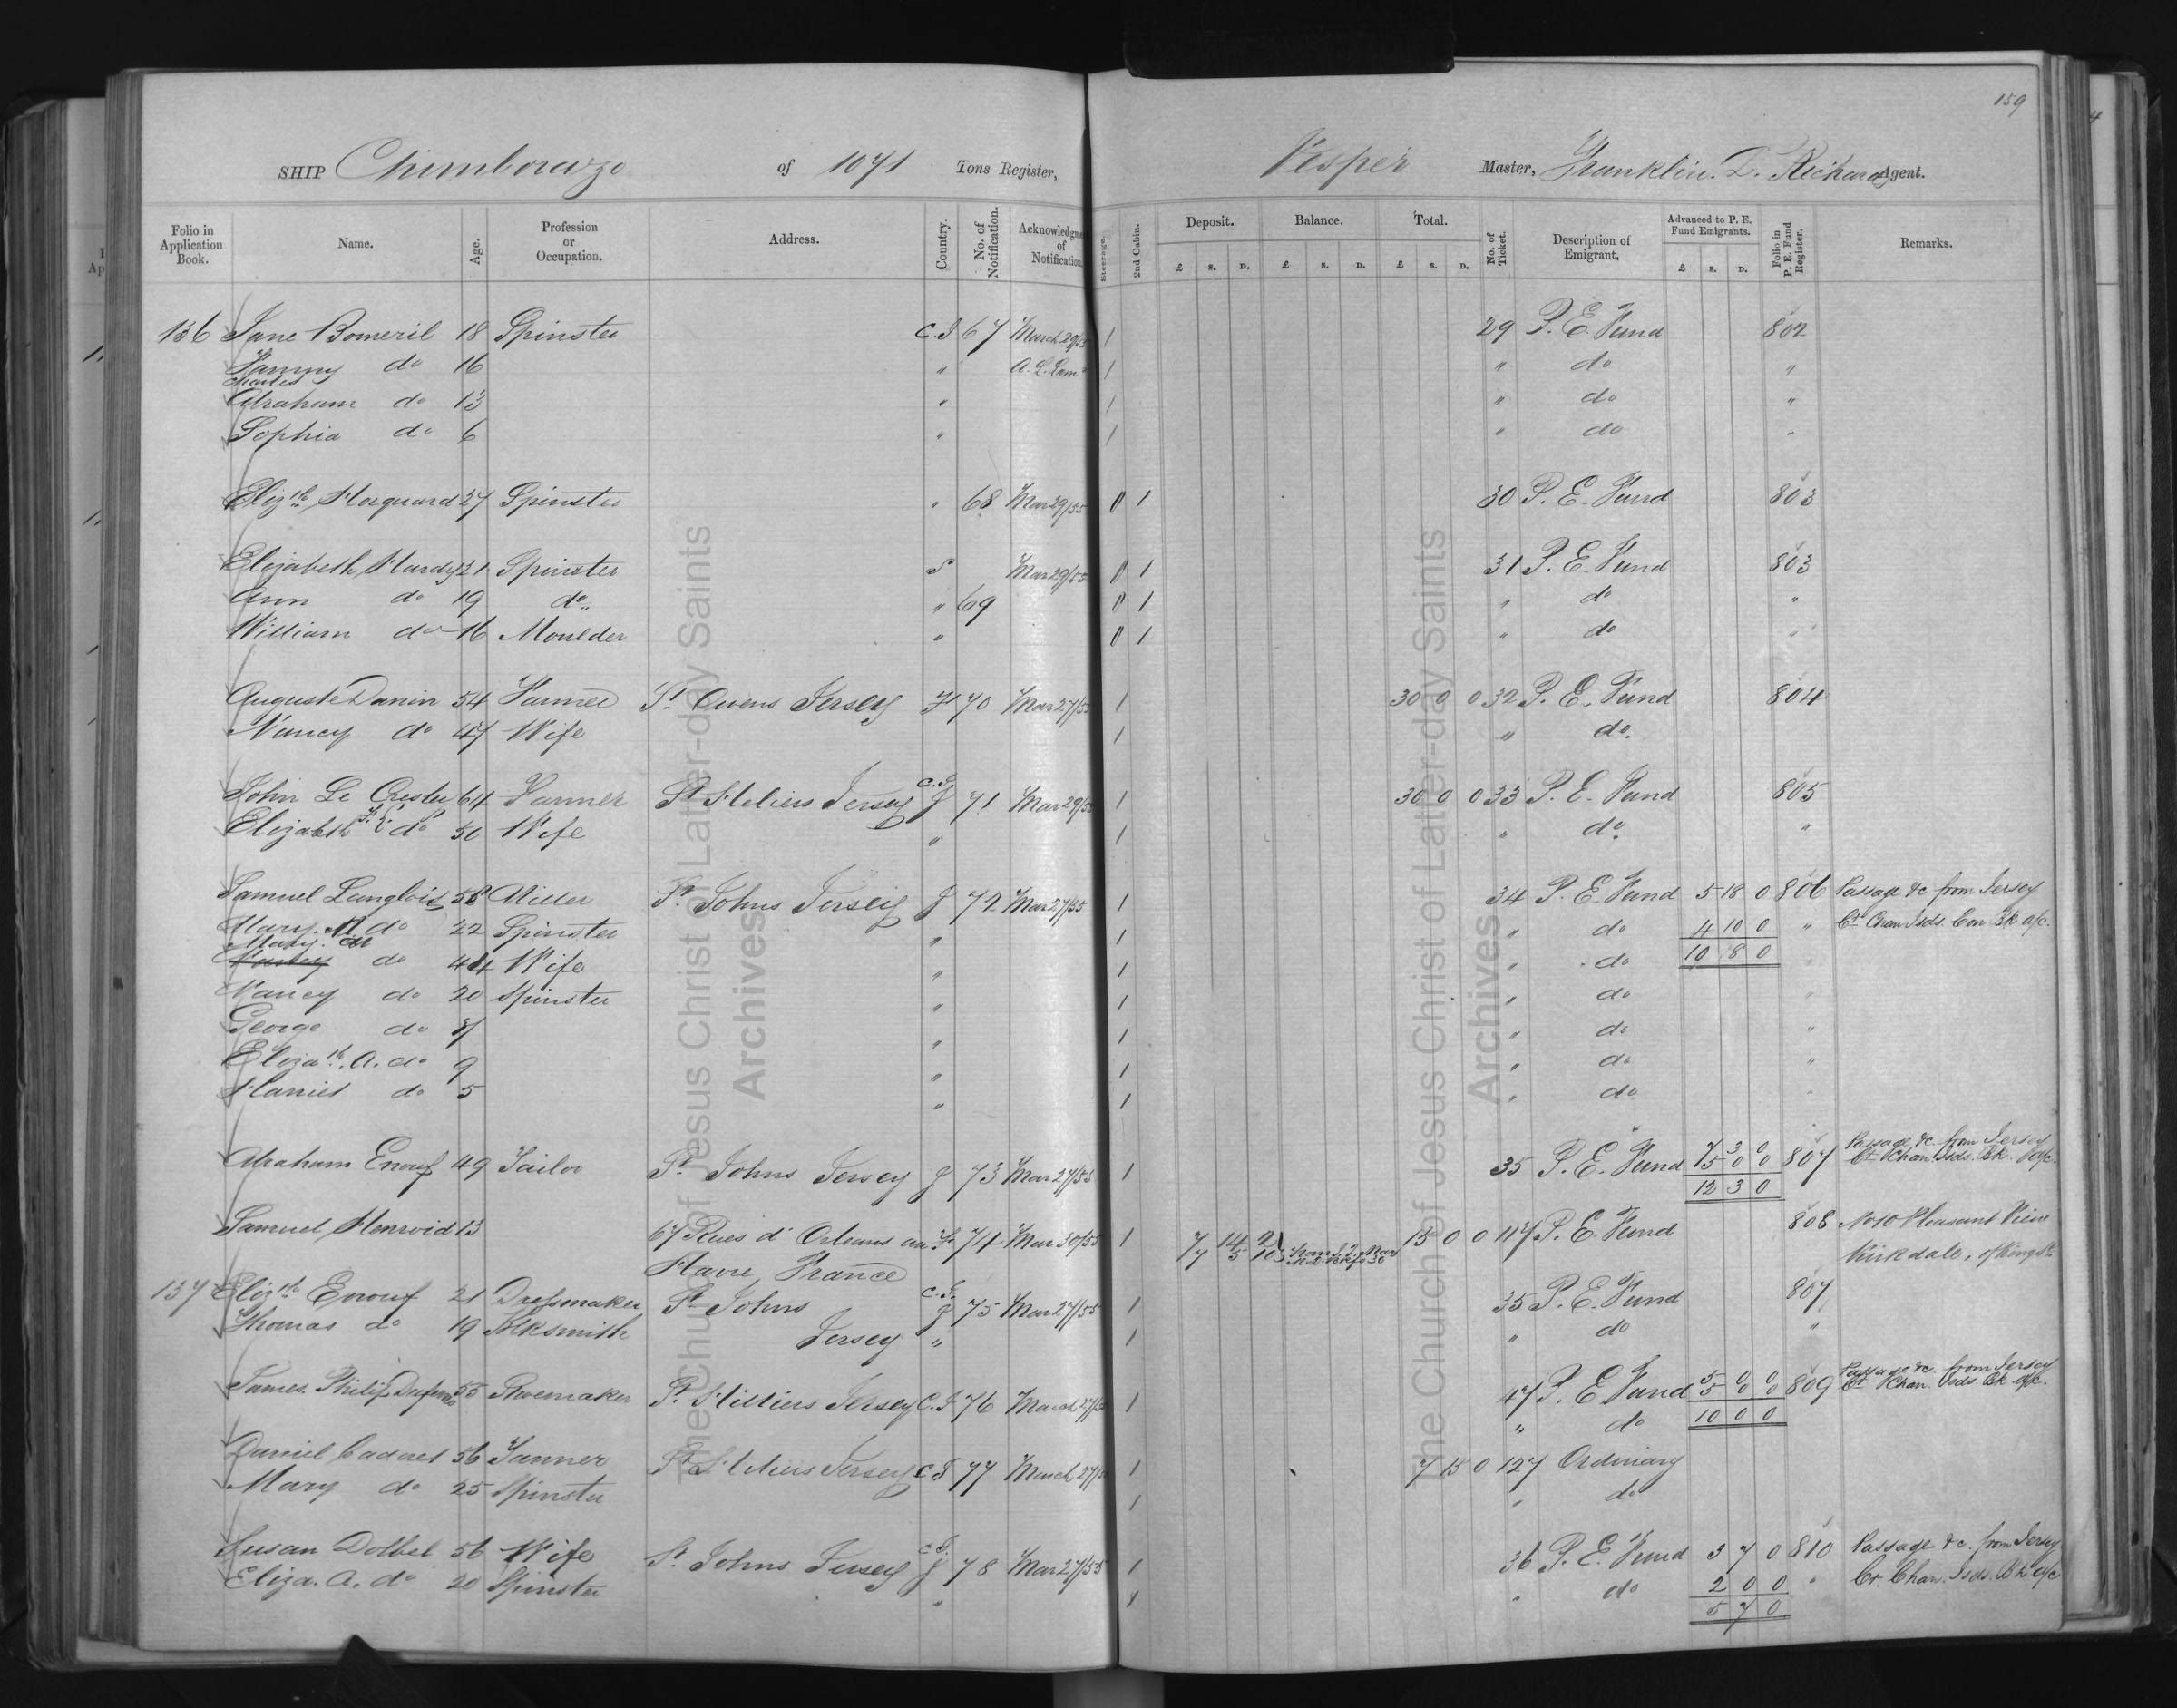 159
SHIP Chimborazo of 1071 Tons Register, Vesper Master, Franklin. D. Richards Agent.
Folio in Application Book. Name. Age. Profession or Occupation. Address. Country. No. of Notification. Acknowledgment of Notification. Steerage. 2nd Cabin. Deposit. £ s. D. Balance. £ s. D. Total. £ s. D. No. of Ticket. Description of Emigrant. Advanced to P. E. Fund Emigrants. £ s. D. Folio in P. E. Fund Register. Remarks.
136 Jane Bomeril 18 Spinster C.I 67 March 29/55 1 29 P. E. Fund 802
Fanny do 16 " 1 " do "
Charles
Abraham do 13 " 1 " do "
Sophia do 6 " 1 " do "
Elizth Horguard 27 Spinster " 68 Mar 29/55 0 1 30 P. E. Fund 803
Elizabeth Hardy 21 Spinster Mar 29/55 0 1 31 P. E. Fund 803
Ann do 19 do " 69 0 1 " do "
William do 16 Moulder " 0 1 " do "
Auguste Danin 54 Farmer St Owens Jersey F 70 Mar 27/55 1 30 0 0 32 P. E. Fund 804
Nancy do 47 Wife 1 " do.
C.I.
John Le 64 Farmer St Heliers Jersey J 71 Mar 29/55 1 30 0 0 33 P. E. Fund 805
Elizabeth do 50 Wife " 1 " do "
Samuel Langlois 58 Miller St Johns Jersey J 72 Mar 27/55 1 34 P. E. Fund 5 18 0 806 Passage &c from Jersey
Mary. A do 22 Spinster " 1 " do 4 10 0 " Ct Chan Isds. Con Bk a/c.
Mary.
Nancy do 44 Wife " 1 " do 10 8 0
Nancy do 20 Spinster " 1 " do "
George do 7 " 1 " do "
Elizath. A. do 9 " 1 " do "
Harriet do 5 " 1 " do "
Abraham Enouf 49 Tailor St Johns Jersey J 73 Mar 27/55 1 35 P. E. Fund 7 3 0 807 Passage &c. from Jersey
5 0 0 Ct Chan. Isds. Bk. a/c.
12 3 0
Samuel Henroid 13 67 Rues d' Orleans au F. 74 Mar 30/55 1 7 14 2 15 0 0 117 P. E. Fund 808 No 10 Pleasant View
Havre, France 7 5 10 Kirkdale, of King St
C.I.
137 Elizth Enouf 21 Dressmaker St Johns J 75 Mar 27/55 1 35 P. E. Fund 807
Thomas do 19 Jersey " 1 " do "
James Philip 55 Shoemaker St Hilliers Jersey C.I 76 March 27/55 1 47 P. E. Fund 5 0 0 809 Passage &c from Jersey
5 0 0 Ct Chan. Isds. Bk. a/c.
" do 10 0 0
Daniel Cadoret 56 St Heliers Jersey C.I 77 March 27/55 1 7 15 0 127 Ordinary
Mary do 25 Spinster 1 " do
C.I.
Susan Dolbel 56 Wife St Johns Jersey J 78 Mar 27/55 1 36 P. E. Fund 3 7 0 810 Passage &c. from Jersey
Eliza. A. do 20 Spinster " 1 " do 2 0 0 " Cr. Chan. Isds. Bk a/c
5 7 0
The Church of Jesus Christ of Latter-day Saints
Archives
The Church of Jesus Christ of Latter-day Saints
Archives